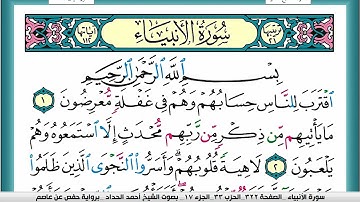 سُورَةُ الأَنبِيَاءِ
بِسْمِ اللَّهِ الرَّحْمَٰنِ الرَّحِيمِ
اقْتَرَبَ لِلنَّاسِ حِسَابُهُمْ وَهُمْ فِي غَفْلَةٍ مُعْرِضُونَ ١
مَا يَأْتِيهِم مِّن ذِكْرٍ مِّن رَّبِّهِم مُّحْدَثٍ إِلَّا اسْتَمَعُوهُ وَهُمْ
يَلْعَبُونَ ٢ لَاهِيَةً قُلُوبُهُمْ وَأَسَرُّوا النَّجْوَى الَّذِينَ ظَلَمُوا
سورة الأنبياء الصفحة ٣٢٢ الحزب ٣٣ الجزء ١٧ بصوت الشيخ أحمد الحداد برواية حفص عن عاصم